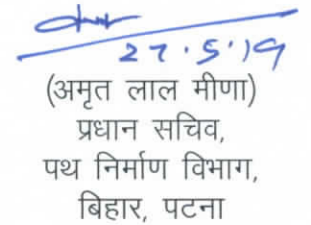 27.5.19
(अमृत लाल मीणा)
प्रधान सचिव,
पथ निर्माण विभाग,
बिहार, पटना